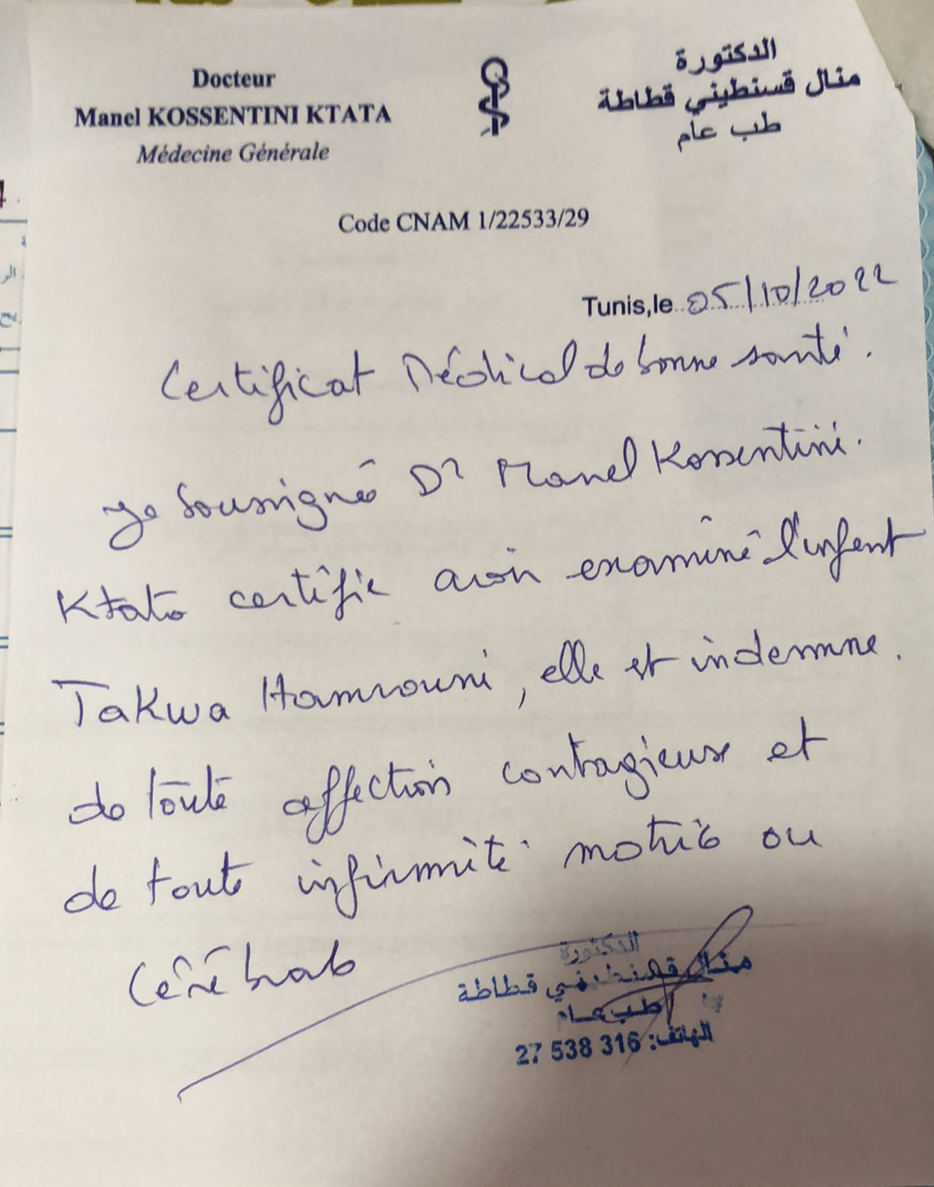 Docteur
Manel KOSSENTINI KTATA
Médecine Générale
الدكتورة
منال قسنطيني قطاطة
طب عام
Code CNAM 1/22533/29
Tunis,le 05/10/2022
Certificat Médical de bonne santé.
Je soussigné Dr Manel Kossentini
Ktata certifie avoir examiné l'enfant
Takwa Hamrouni, elle est indemne.
de toute affection contagieuse et
de toute infirmité motrice ou
cérébrale
الدكتورة
منال قسنطيني قطاطة
طب عام
الهاتف: 316 538 27